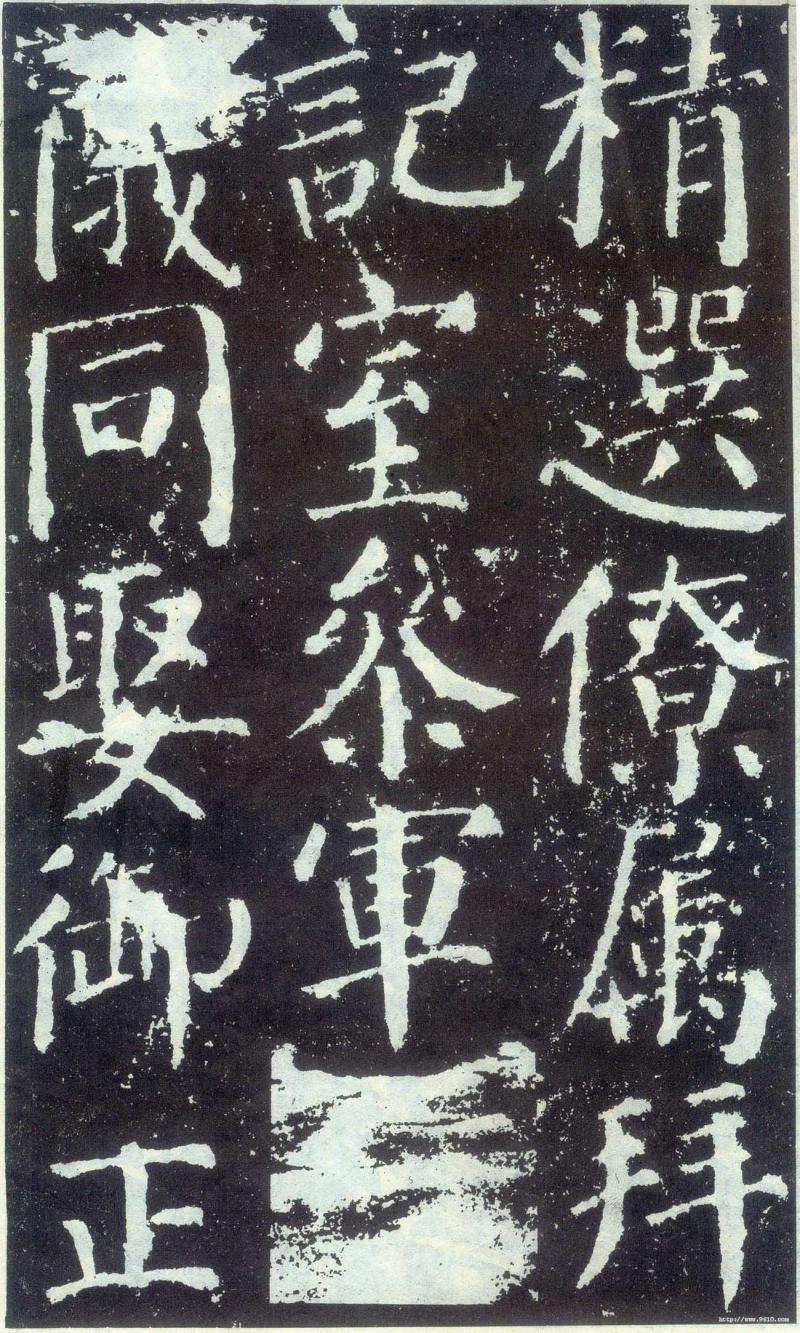 精選僚属拜
記室叅軍
儀同娶御正
http://www.9610.com